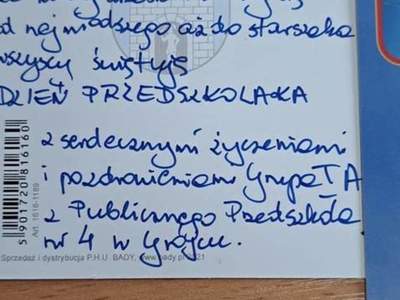 od najmłodszego aż do starszaka
wszyscy świętują
DZIEŃ PRZEDSZKOLAKA
z serdecznymi życzeniami
i pozdrowieniami Grupa TA
z Publicznego Przedszkola
nr 4 w Grójcu.
5 901720 816160
Art. 1616-1189
Sprzedaż i dystrybucja P.H.U BADY, www.bady.pl 2021